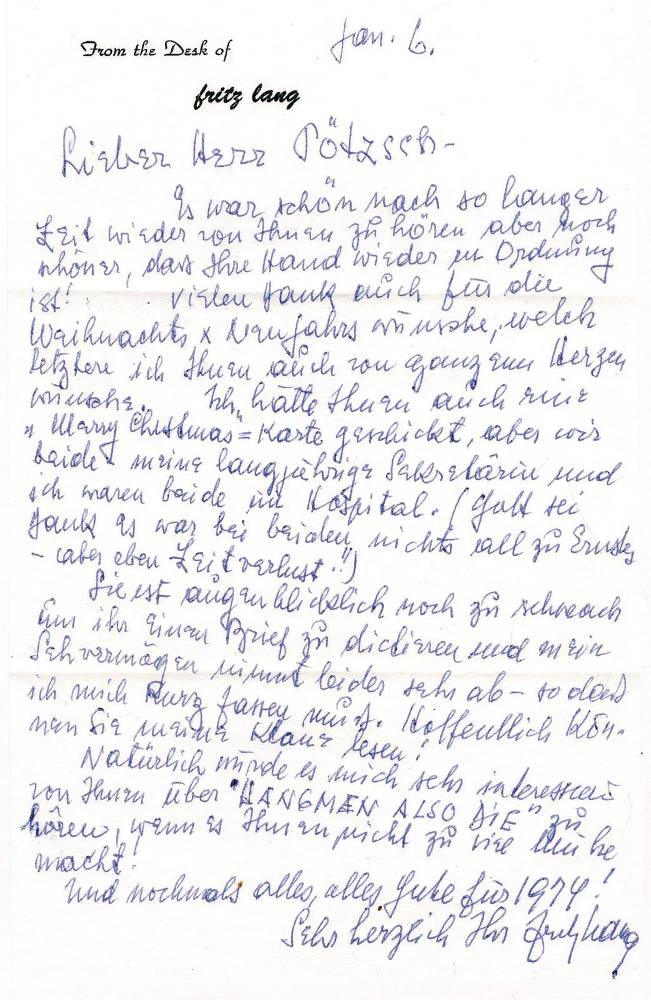 From the Desk of
fritz lang
Jan. 6.
Lieber Herr Pötzsch-
Es war schön nach so langer
Zeit wieder von Ihnen zu hören aber noch
schöner, dass Ihre Hand wieder in Ordnung
ist! Vielen Dank auch für die
Weihnachts x Neujahrs wünsche, welch
letztere ich Ihnen auch von ganzem Herzen
wünsche. Ich hätte Ihnen auch eine
"Merry Christmas"=Karte geschickt, aber wir
beide - meine langjährige Sekretärin und
ich waren beide im Hospital. (Gott sei
Dank es war bei beiden nichts all zu Ernstes
- aber eben Zeitverlust.!!)
Sie ist augenblicklich noch zu schwach
um ihr einen Brief zu dictieren und mein
Sehvermögen nimmt leider sehr ab - so dass
ich mich kurz fassen muss. Hoffentlich kön-
nen Sie meine Klaue lesen!
Natürlich würde es mich sehr interessieren
von Ihnen über "HANGMEN ALSO DIE" zu
hören, wenn es Ihnen nicht zu viel Mühe
macht!
Und nochmals alles, alles Gute für 1974!
Sehr herzlich Ihr Fritz Lang